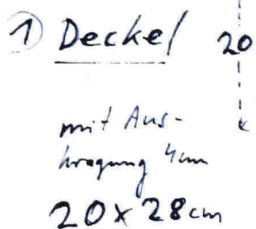 ① Deckel 20
mit Aus-
kragung 4cm
20x28cm